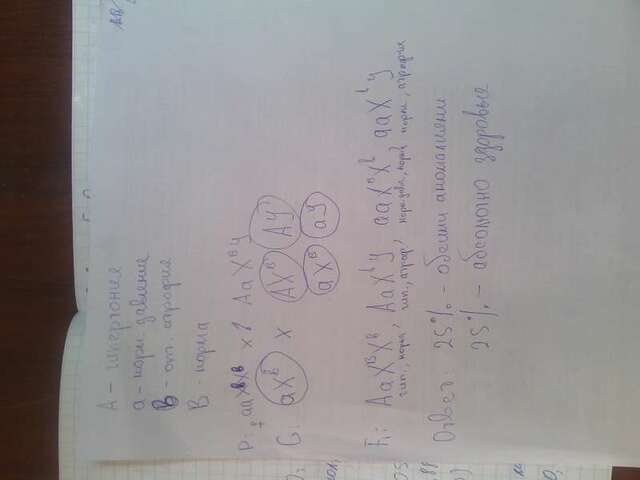 A - гипертония
a - норм. давление
B - оп. атрофия
B - норма
P: ♀ aaXbXb x ♂ AaXᴮY
G: aXᵇ x AXᴮ AY
aXᴮ aY
F₁: AaXᴮXᵇ, AaXᵇY, aaXᴮXᵇ, aaXᵇY
гип., норма, гип., атроф., норм. давл., норма, норм., атрофия
Ответ: 25% - обеими аномалиями
25% - абсолютно здоровые